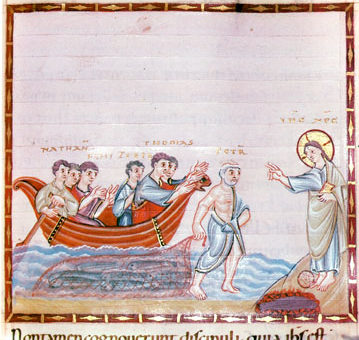 IHC XPC
THOMAS
NATHAN PETR
FILII ZEBEDEI
Non tamen cognoverunt discipuli quia ihs est